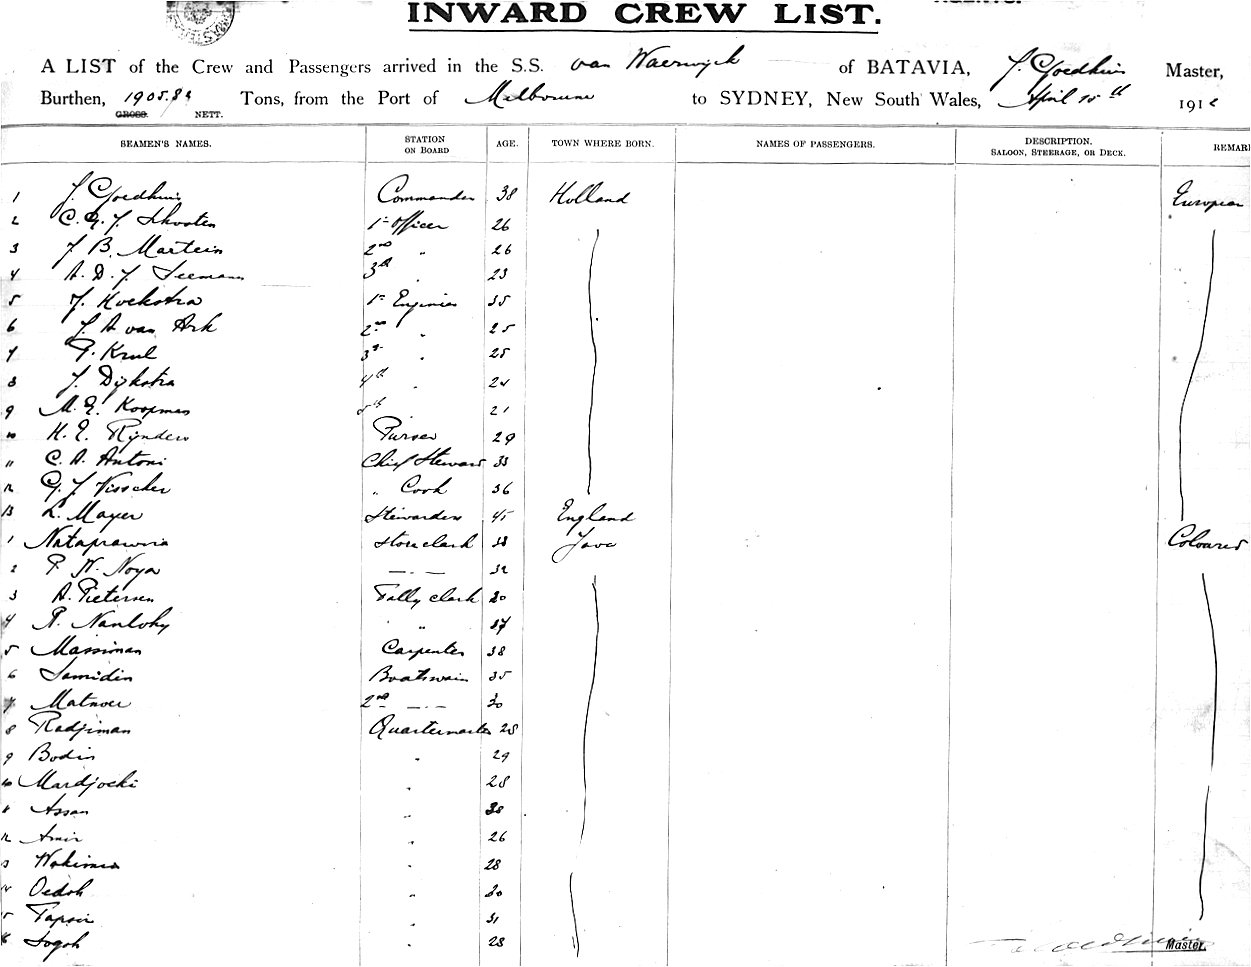 INWARD CREW LIST.
A LIST of the Crew and Passengers arrived in the S.S. van Waerwijck of BATAVIA, J. Goedhuis Master,
Burthen, 1905.89 Tons, from the Port of Melbourne to SYDNEY, New South Wales, April 15th 191
GROSS. NETT.
SEAMEN'S NAMES. STATION ON BOARD AGE. TOWN WHERE BORN. NAMES OF PASSENGERS. DESCRIPTION. SALOON, STEERAGE, OR DECK. REMAR
1 J. Goedhuis Commander 38 Holland European
2 C. G. J. Schooten 1st Officer 26
3 J B. Martein 2nd " 26
4 A. D. J. Seemann 3th " 23
5 J. Hoekstra 1st Engineer 35
6 J. A van Ark 2nd " 25
7 P. Krul 3rd " 25
8 J. Dijkstra 4th " 24
9 M. E. Koopmas 5th 21
10 H. E. Rijnders Purser 29
11 C. A. Antoni Chief Steward 33
12 G. J Visscher " Cook 36
13 L. Mayer Stewardess 45 England
1 Nataprawira Storeclark 38 Java Coloured
2 P. W. Noya —"— 32
3 A. Pietersen Tally clark 20
4 P. Nanlohy " 37
5 Massiman Carpenter 38
6 Samidin Boatswain 35
7 Matnoer 2nd —"— 30
8 Radjiman Quartermaster 28
9 Bodin " 29
10 Mardjoeki " 28
11 Assan " 38
12 Amir " 26
13 Wakiman " 28
14 Oedoh " 20
15 Tapsir " 31
16 Sogoh " 28
Master.